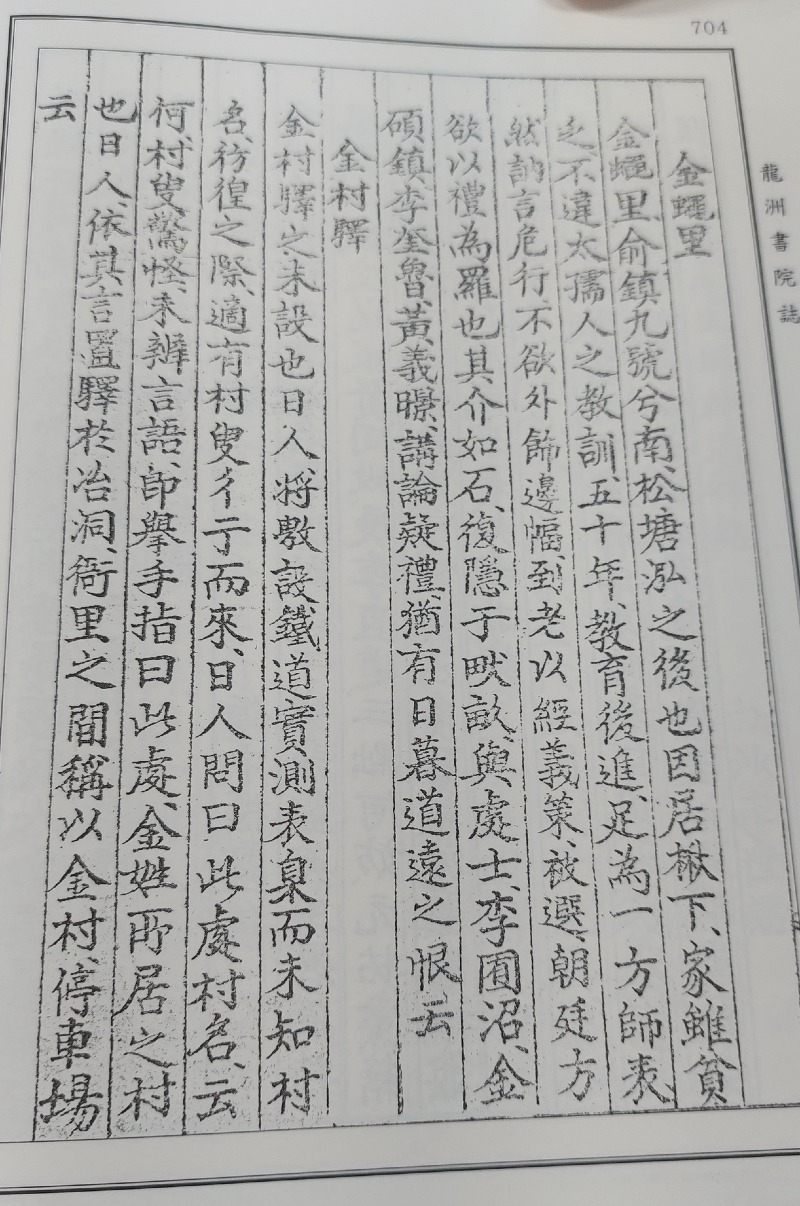 704
龍洲書院誌
金蠅里
金蠅里俞鎮九號兮南松塘泓之後也因居楸下、家雖貧
之不違太孺人之教訓、五十年、教育後進、足為一方師表
然訥言危行不欲外飾邊幅、到老以經義策、被選、朝廷方
欲以禮為羅也其介如石、復隱于畎畝、與處士、李圃沼、金
碩鎮、李奎魯、黃義暻、講論疑禮、猶有日暮道遠之恨云
金村驛
金村驛之未設也日人、將敷設鐵道實測表臬而未知村
名、彷徨之際、適有村叟彳亍而來、日人問曰此處村名、云
何、村叟、驚怪、未辨言語、卽擧手指曰此處、金姓所居之村
也日人、依其言置驛於冶洞、衙里之間稱以金村、停車場
云